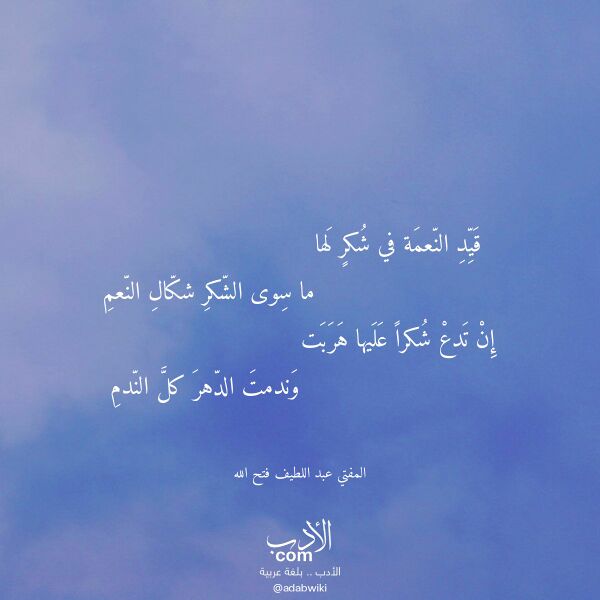 قَيِّدِ النّعمَة في شُكرٍ لَها
ما سِوى الشّكرِ شكّالِ النّعمِ
إِنْ تَدعْ شُكراً عَلَيها هَرَبَت
وَندمتَ الدّهرَ كلَّ النّدمِ
المفتي عبد اللطيف فتح الله
الأدب
com
الأدب .. بلغة عربية
@adabwiki